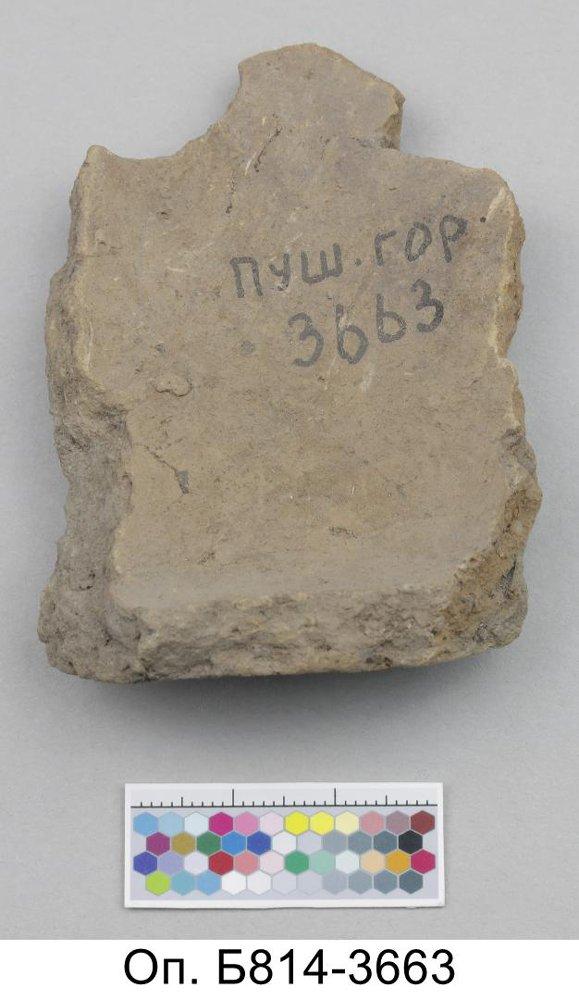 пуш. гор
3663
Оп. Б814-3663